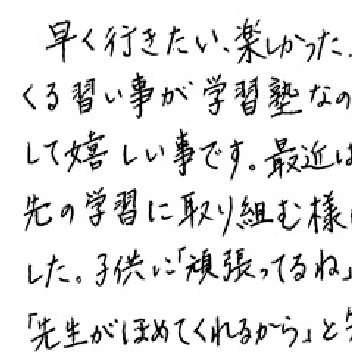 早く行きたい、楽しかった、
くる習い事が学習塾なの
して嬉しい事です。最近は
先の学習に取り組む様に
した。子供に「頑張ってるね」
「先生がほめてくれるから」と